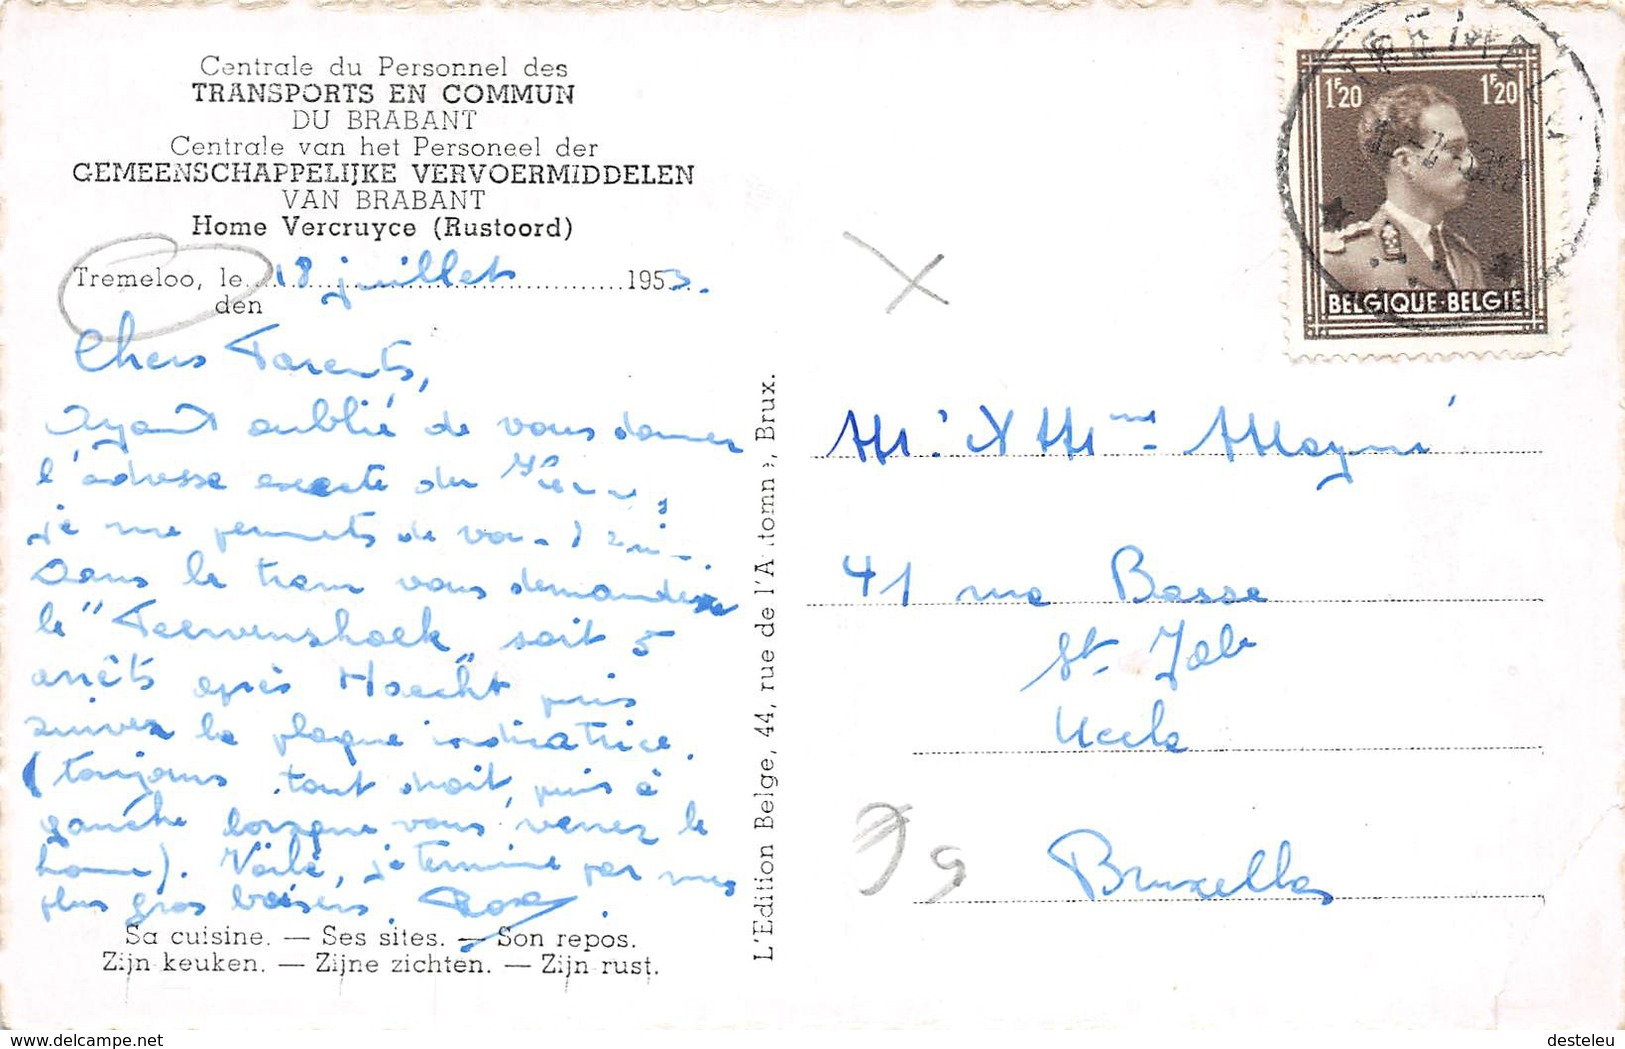 Centrale du Personnel des
TRANSPORTS EN COMMUN
DU BRABANT
Centrale van het Personeel der
GEMEENSCHAPPELIJKE VERVOERMIDDELEN
VAN BRABANT
Home Vercruyce (Rustoord)
Tremeloo, le 18 juillet 1953.
den
Chers Parents,
Ayant oublié de vous donner
l'adresse exacte du
je me permets de
Dans le tram vous demandez
le "Peervenshoek" soit 5
arrêts après Haecht puis
suivez la plaque indicatrice.
(toujours tout droit, puis à
gauche lorsque vous venez le
home). Voilà, je termine par mes
plus gros baisers. Rosa.
Sa cuisine. — Ses sites. — Son repos.
Zijn keuken. — Zijne zichten. — Zijn rust.
L'Edition Belge, 44, rue de l'Automne, Brux.
1F20 1F20
BELGIQUE-BELGIE
TREMELO
Mr. & Mme
41 rue Basse
St. Job
Uccle
Bruxelles
delcampe.net
desteleu